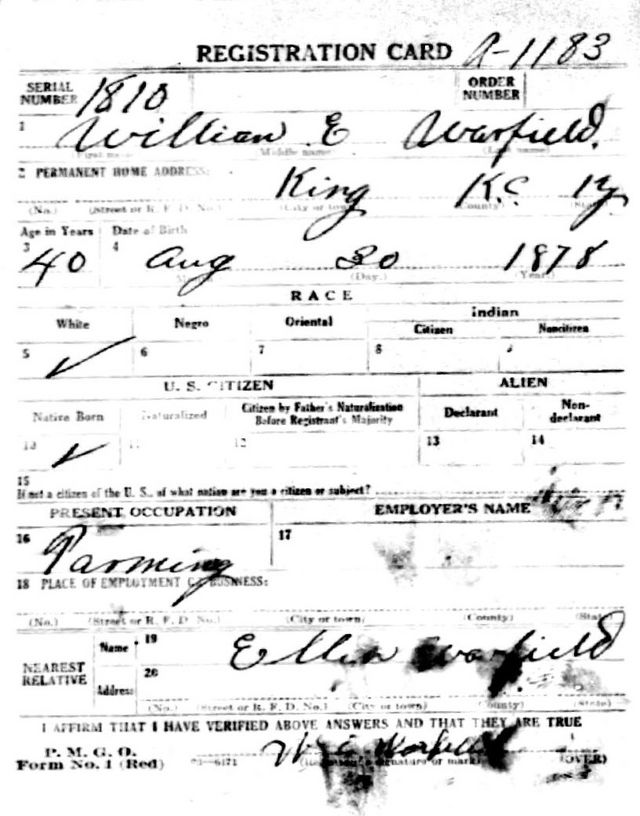 REGISTRATION CARD A-1183
SERIAL NUMBER 1810 ORDER NUMBER
1 William E Warfield.
(First name) (Middle name) (Last name)
2 PERMANENT HOME ADDRESS:
King K.C. Ky
(No.) (Street or R. F. D. No.) (City or town) (County) (State)
Age in Years Date of Birth
3 4
40 Aug 30 1878
(Day.) (Year.)
RACE
White Negro Oriental Indian
Citizen Noncitizen
5 ✓ 6 7 8
U. S. CITIZEN ALIEN
Native Born Naturalized Citizen by Father's Naturalization Before Registrant's Majority Declarant Non-declarant
10 ✓ 11 12 13 14
15
If not a citizen of the U. S., of what nation are you a citizen or subject?
PRESENT OCCUPATION EMPLOYER'S NAME
16 Farming 17
18 PLACE OF EMPLOYMENT OR BUSINESS:
(No.) (Street or R. F. D. No.) (City or town) (County) (State)
NEAREST RELATIVE Name 19 Ellen Warfield
Address 20
(No.) (Street or R. F. D. No.) (City or town) (County) (State)
I AFFIRM THAT I HAVE VERIFIED ABOVE ANSWERS AND THAT THEY ARE TRUE
P. M. G. O.
Form No. 1 (Red) W E Warfield
(Registrant's signature or mark) (OVER)